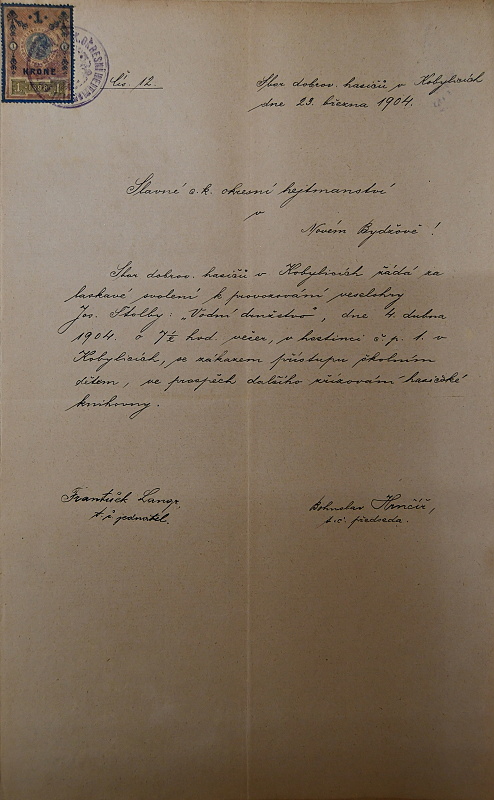 1
KRONE
1 1
Čís. 12.
Sbor dobrov. hasičů v Kobylicích
dne 23. března 1904.
Slavné c. k. okresní hejtmanství
v
Novém Bydžově!
Sbor dobrov. hasičů v Kobylicích žádá za
laskavé svolení k provozování veselohry
Jos. Štolby: „Vodní družstvo", dne 4. dubna
1904. o 7½ hod. večer, v hostinci č. p. 1. v
Kobylicích, se zákazem přístupu školním
dětem, ve prospěch dalšího zřizování hasičské
knihovny.
František Langr,
t. č. jednatel.
Bohuslav Hrnčíř,
t. č. předseda.